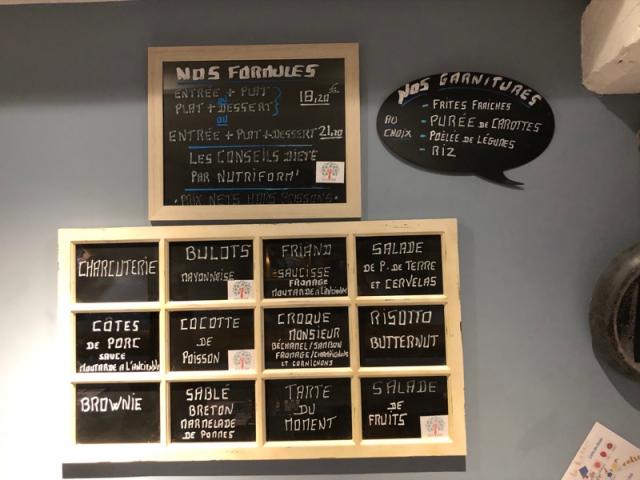 NOS FORMULES
ENTRÉE + PLAT
ou
PLAT + DESSERT
18,20 €
ou
ENTRÉE + PLAT + DESSERT 21,20
LES CONSEILS DIÉTÉ
PAR NUTRIFORM'
PRIX NETS HORS BOISSONS
NOS GARNITURES
AU CHOIX
- FRITES FRAICHES
- PURÉE DE CAROTTES
- POÊLÉE DE LÉGUMES
- RIZ
CHARCUTERIE
BULOTS
MAYONNAISE
FRIAND
SAUCISSE
FROMAGE
MOUTARDE A L'ANCIENNE
SALADE
DE P. DE TERRE
ET CERVELAS
CÔTES
DE PORC
SAUCE
MOUTARDE A L'ANCIENNE
COCOTTE
DE
POISSON
CROQUE
MONSIEUR
BÉCHAMEL/JAMBON
FROMAGE/CHAMPIGNONS
ET CORNICHONS
RISOTTO
BUTTERNUT
BROWNIE
SABLÉ
BRETON
MARMELADE
DE POMMES
TARTE
DU
MOMENT
SALADE
DE
FRUITS